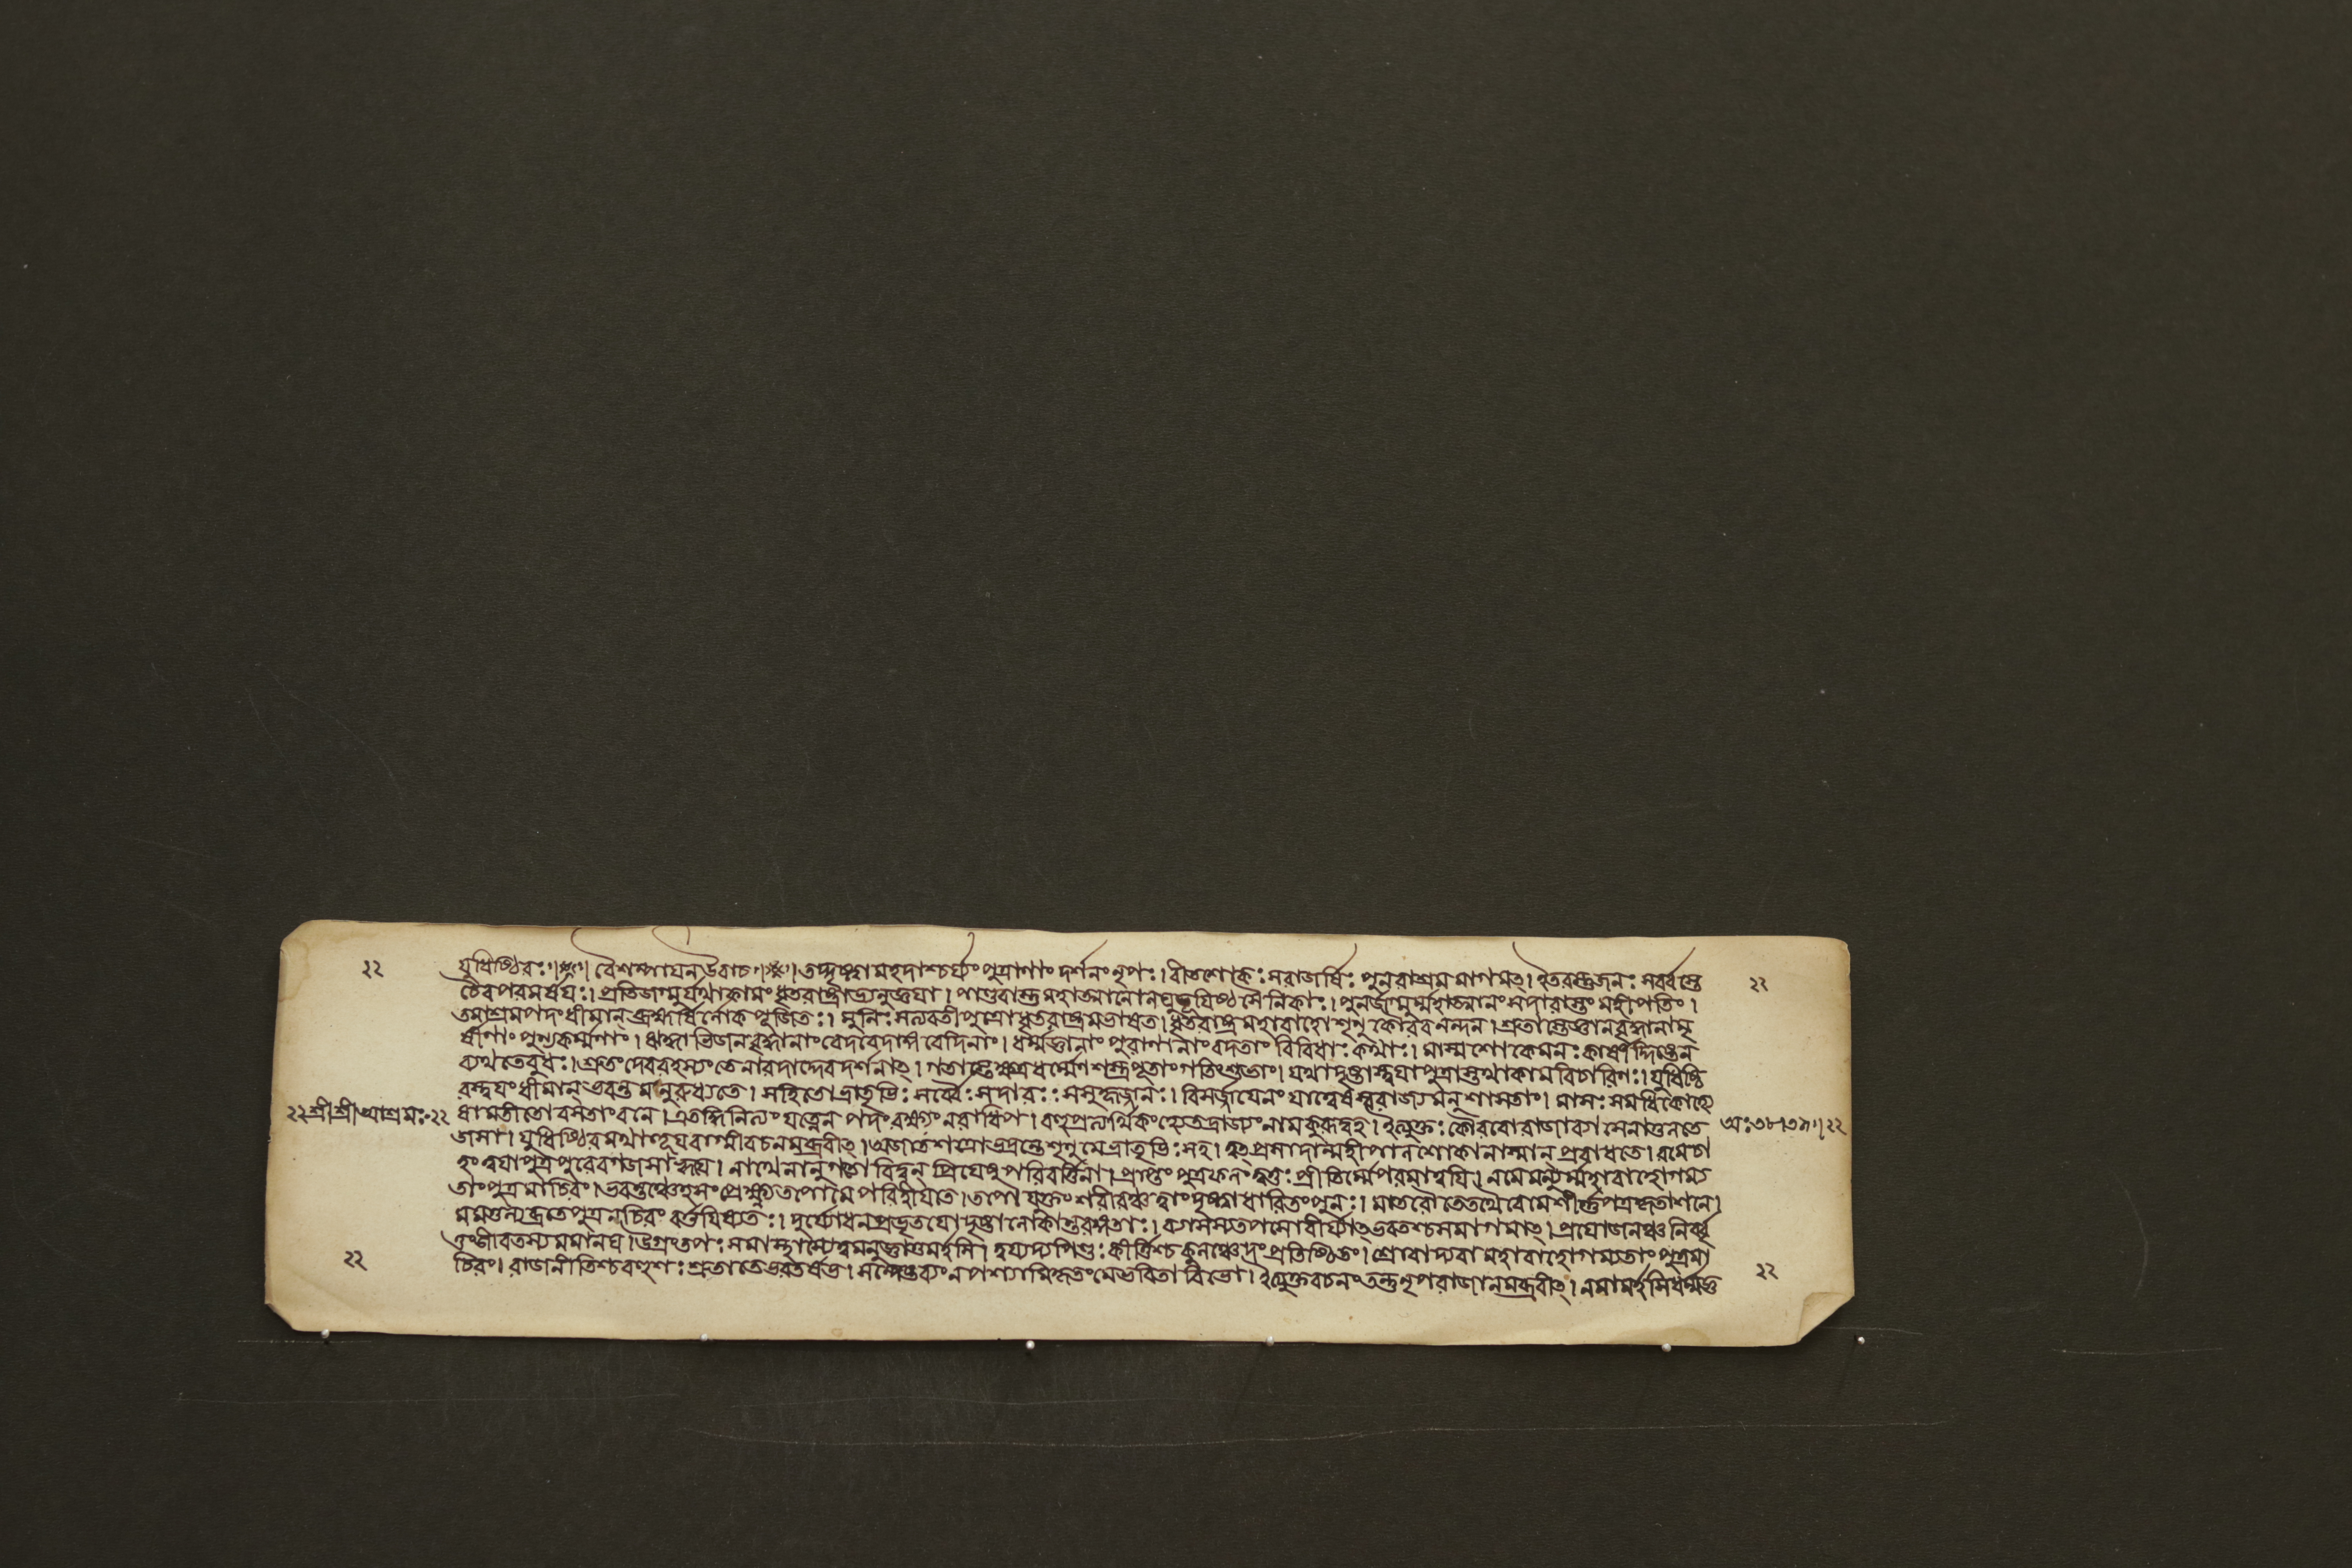 ২২ যুধিষ্ঠিরঃ।※। বৈশম্পাযন উবাচ।※। তদ্দৃষ্ট্বা মহদাশ্চর্য্যং পুত্রাণাং দর্শনং নৃপঃ। বীতশোকঃ সরাজর্ষিঃ পুনরাশ্রমমাগমত্। ইতরস্তুজনঃ সর্ব্বস্তে ২২
চৈবপরমর্ষযঃ। প্রতিজগ্মুর্যথাকামং ধৃতরাষ্ট্রাভ্যনুজ্ঞযা। পাণ্ডবাস্তু মহাত্মানো লঘুভূযিষ্ঠসৈনিকাঃ। পুনর্জগ্মুর্ম্মহাত্মানং সদারাস্তং মহীপতিং।
তমাশ্রমপদং ধীমান্ ব্রহ্মর্ষির্লোকপূজিতঃ। মুনিঃ সত্যবতীপুত্রো ধৃতরাষ্ট্রমভাষত। ধৃতরাষ্ট্র মহাবাহো শৃণু কৌরবনন্দন। শ্রুতাস্তেজ্ঞানবৃদ্ধানামৃ
ষীণাং পুণ্যকর্ম্মণাং। ঋদ্ধাভিজনবৃদ্ধানাং বেদবেদাঙ্গবেদিনাং। ধর্ম্মজ্ঞানাং পুরাণানাং বদতাং বিবিধাঃ কথাঃ। মাস্মশোকেমনঃ কার্ষীর্দ্দিষ্টেন
ব্যথতেবুধঃ। শ্রুতং দেবরহস্যং তে নারদাদ্দেবদর্শনাত্। গতাস্তেক্ষত্রধর্ম্মেণ শস্ত্রপূতাং গতিংশুভাং। যথাদৃষ্টাস্ত্বযাপুত্রাস্তথাকামবিচারিণঃ। যুধিষ্ঠি
রস্ত্বযং ধীমান্ ভবন্তমনুরুধ্যতে। সহিতো ভ্রাতৃভিঃ সর্ব্বৈঃ সদারঃ সসুহৃজ্জনঃ। বিসর্জ্জযেনং যাত্বেষ স্বরাজ্যমনুশাসতাং। মাসঃ সমধিকোহ্যে
২২ শ্রীশ্রীআশ্রমঃ ২২ ষামতীতো বসতাং বনে। এতদ্ধিনিত্যং যত্নেন পদং রক্ষ্যং নরাধিপ। বহুপ্রত্যর্থিকংহ্যেতদ্রাজ্যং নাম কুরূদ্বহ। ইত্যুক্তঃ কৌরবো রাজা ব্যাসেনাতুলতে অঃ৩৮।৩৯।২২
জসা। যুধিষ্ঠিরমথাহূয বাগ্মী বচনমব্রবীত্। অজাতশত্রো ভদ্রন্তে শৃণু মে ভ্রাতৃভিঃ সহ। ত্বত্প্রসাদান্মহীপাল শোকোনাস্মান্ প্রবাধতে। রমেচা
হং ত্বযাপুত্র পুরেবগজসাহ্বযে। নাথেনানুগতো বিদ্বন্ প্রিযেষু পরিবর্ত্তিনা। প্রাপ্তং পুত্রফলং ত্বত্তঃ প্রীতির্ম্মেপরমাত্বযি। নমেমন্যুর্ম্মহাবাহোগম্য
তাংপুত্র মাচিরং। ভবন্তঞ্চেহসংপ্রেক্ষ্য তপোমে পরিহীযতে। তপোযুক্তং শরীরঞ্চ ত্বাংদৃষ্ট্বাধারিতংপুনঃ। মাতরৌ তেতথৈবেমেশীর্ণপত্রকৃতাশনে।
মমতুল্যব্রতেপুত্র নচিরং বর্ত্তযিষ্যতঃ। দুর্য্যোধনপ্রভৃতযো দৃষ্টালোকান্তরঙ্গতাঃ। ব্যাসস্যতপসোবীর্য্যাত্ ভবতশ্চসমাগমাত্। প্রযোজনঞ্চনির্বৃ
ত্তংজীবিতস্যমমানঘ। উগ্রংতপঃ সমাস্থাস্যেত্বমনুজ্ঞাতুমর্হসি। ত্বয্যদ্যপিণ্ডঃ কীর্ত্তিশ্চ কুলঞ্চেদংপ্রতিষ্ঠিতং। শ্বোবাদ্যবামহাবাহোগম্যতাং পুত্রমা
২২ চিরং। রাজনীতিশ্চবহুশঃ শ্রুতাতেভরতর্ষভ। সন্দেষ্টব্যংনপশ্যামিকৃতংমেভবিতাবিভো। ইত্যুক্তবচনংতন্তু নৃপরাজানমব্রবীত্। নমামর্হসিধর্ম্মজ্ঞ ২২